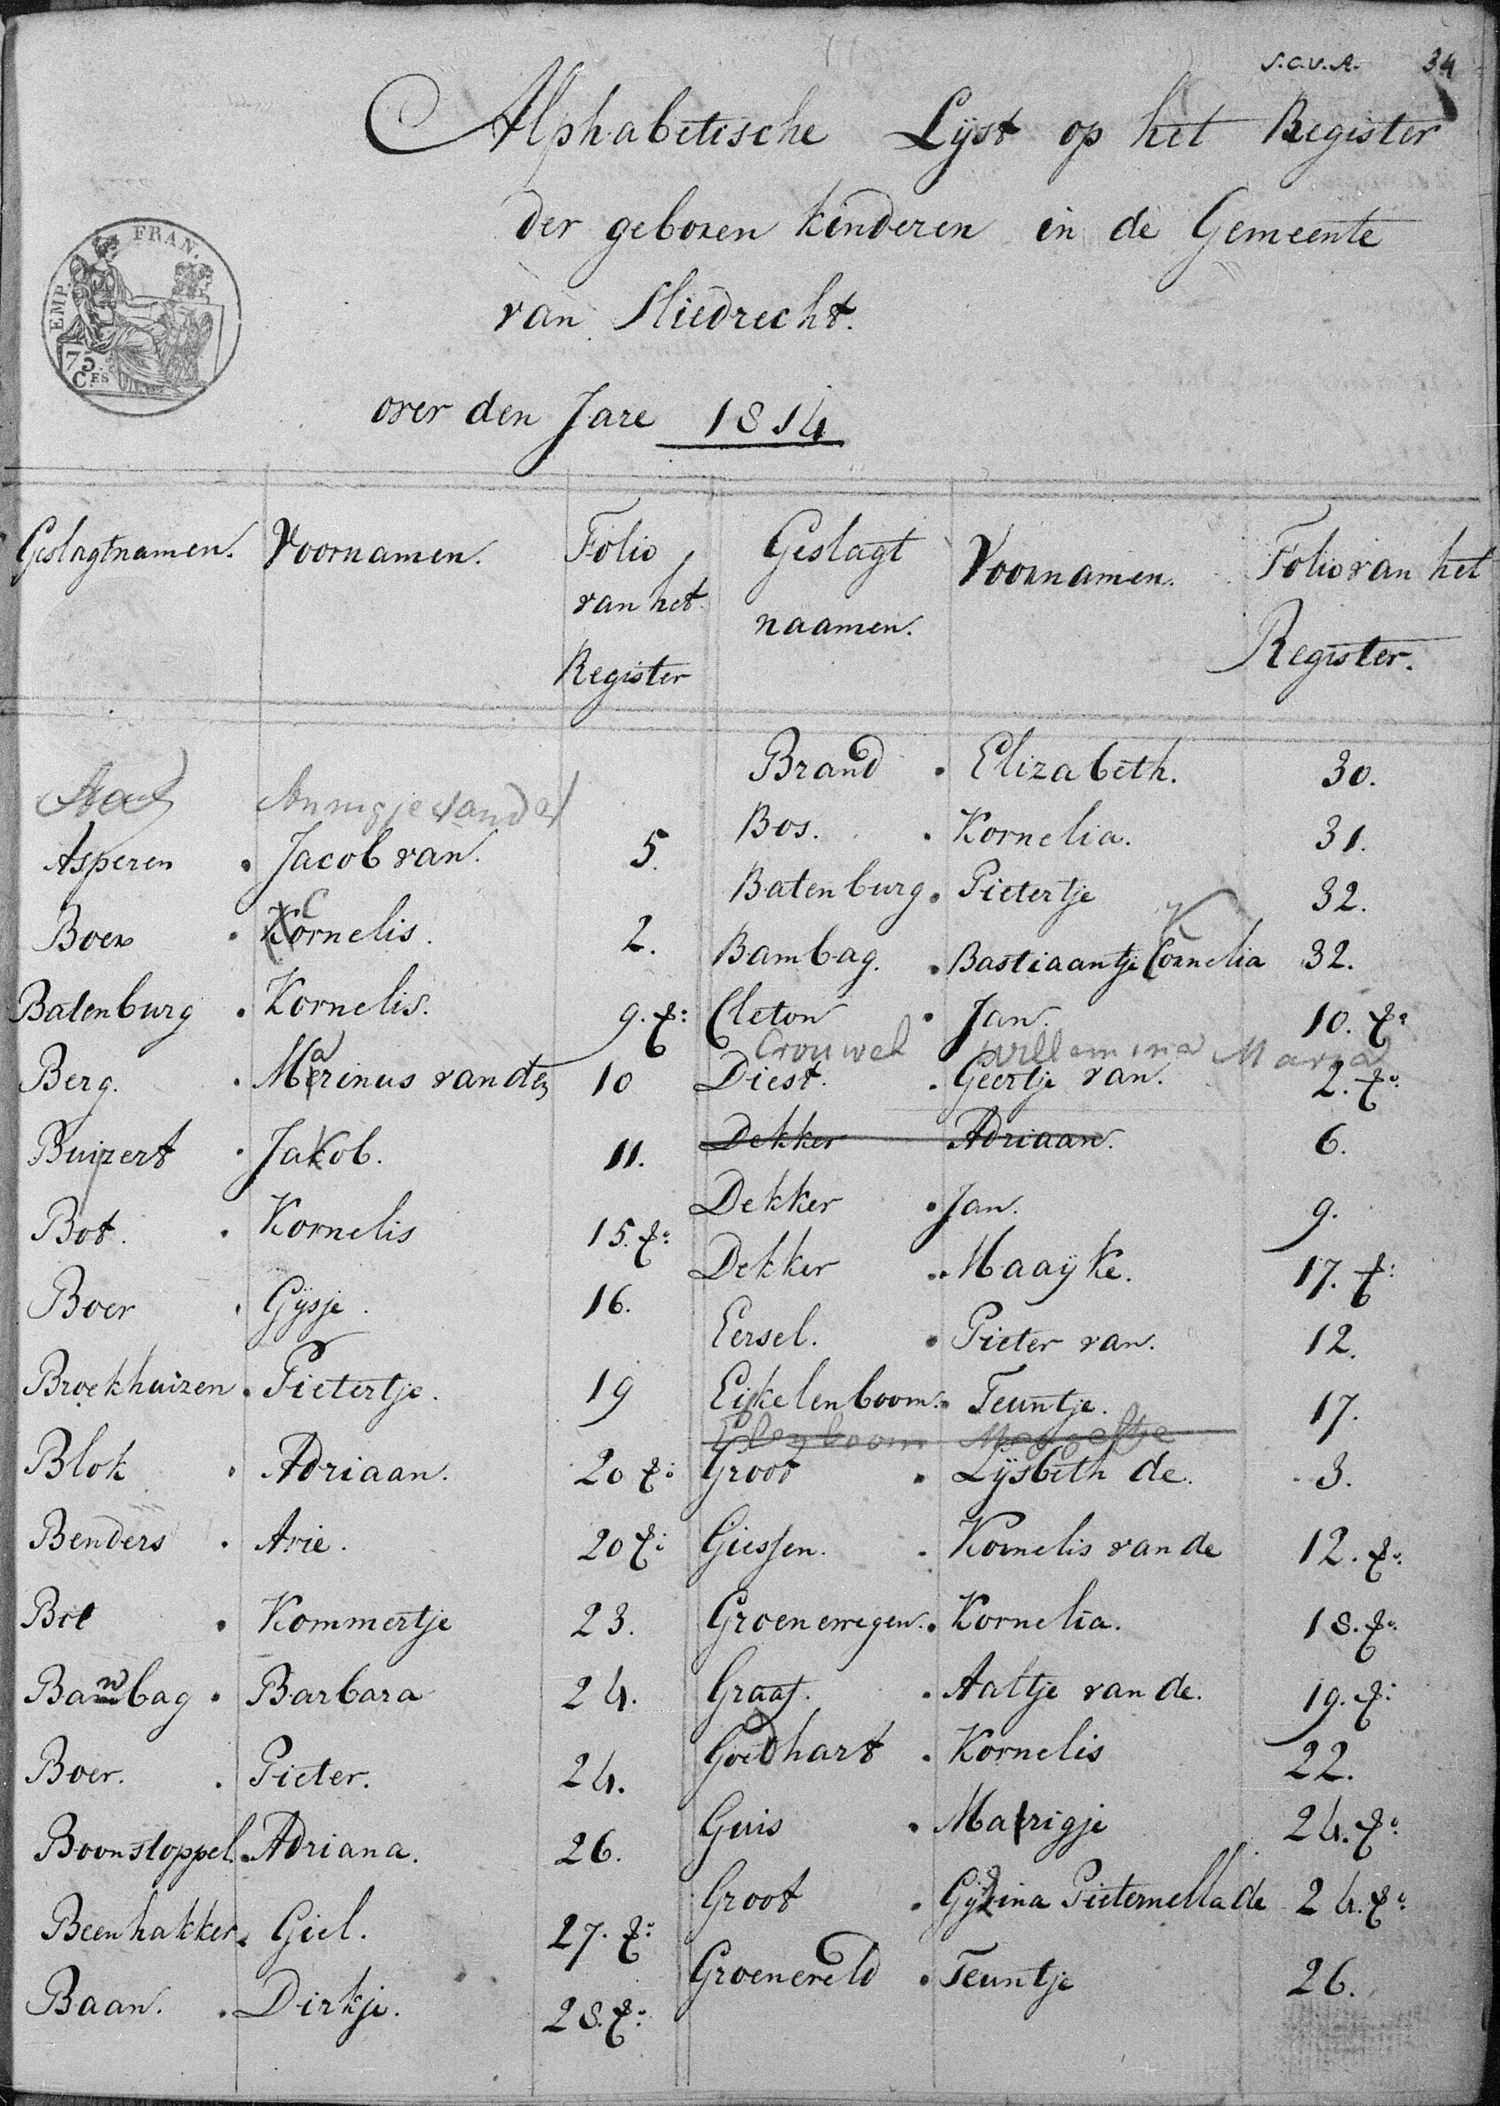 S.C.v.A. 34
Alphabetische Lijst op het Register
der geboren kinderen in de Gemeente
van Sliedrecht.
over den Jare 1814
EMP. FRAN.
75
C.ES
Geslagtnamen. Voornamen. Folio van het Register
Annigje van der
Asperen . Jacob van. 5.
Boer . Cornelis. 2.
Batenburg . Kornelis. 9. v:
Berg. . Marinus van den 10
Buizert . Jakob. 11.
Bot. . Kornelis 15. v:
Boer . Gijsje. 16.
Broekhuizen . Pietertje. 19
Blok . Adriaan. 20 v:
Benders . Arie. 20 v:
Bot . Kommertje 23.
Bambag . Barbara 24.
Boer. . Pieter. 24.
Boonstoppel . Adriana. 26.
Beenhakker . Giel. 27. v:
Baan. . Dirkje. 28. v:
Geslagt naamen. Voornamen. Folio van het Register.
Brand . Elizabeth. 30.
Bos. . Kornelia. 31.
Batenburg . Pietertje 32.
Bambag. . Bastiaantje Cornelia 32.
K
Cleton . Jan. 10. v:
Crouwel Willemina Maria
Diest. . Geertje van. 2. v:
Dekker Adriaan. 6.
Dekker . Jan. 9.
Dekker . Maayke. 17. v:
Eersel. . Pieter van. 12.
Eijkelenboom . Teuntje. 17.
Groot . Lijsbeth de. 3.
Giessen. . Kornelis van de 12. v:
Groenewegen . Kornelia. 18. v:
Graaf. . Aaltje van de. 19. v:
Goedhart . Kornelis 22.
Guis . Marrigje 24. v:
Groot . Gijsina Pieternella de 24. v:
Groeneveld . Teuntje 26.